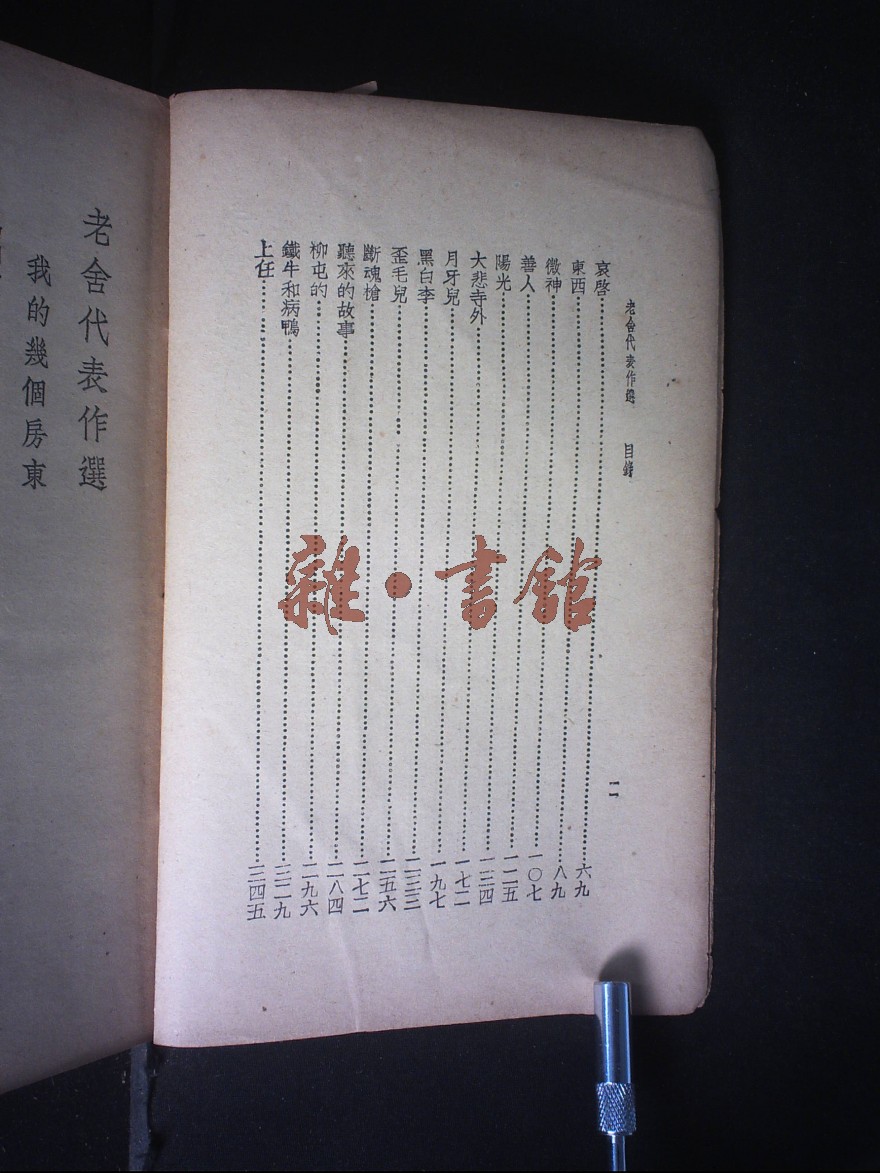 老舍代表作選 目錄 二
哀啓……六九
東西……八九
微神……一〇七
善人……一二五
陽光……一三四
大悲寺外……一七二
月牙兒……一九七
黑白李……二三三
歪毛兒……二五六
斷魂槍……二七二
聽來的故事……二八四
柳屯的……二九六
鐵牛和病鴨……三二九
上任……三四五
老舍代表作選
我的幾個房東
雜·書館